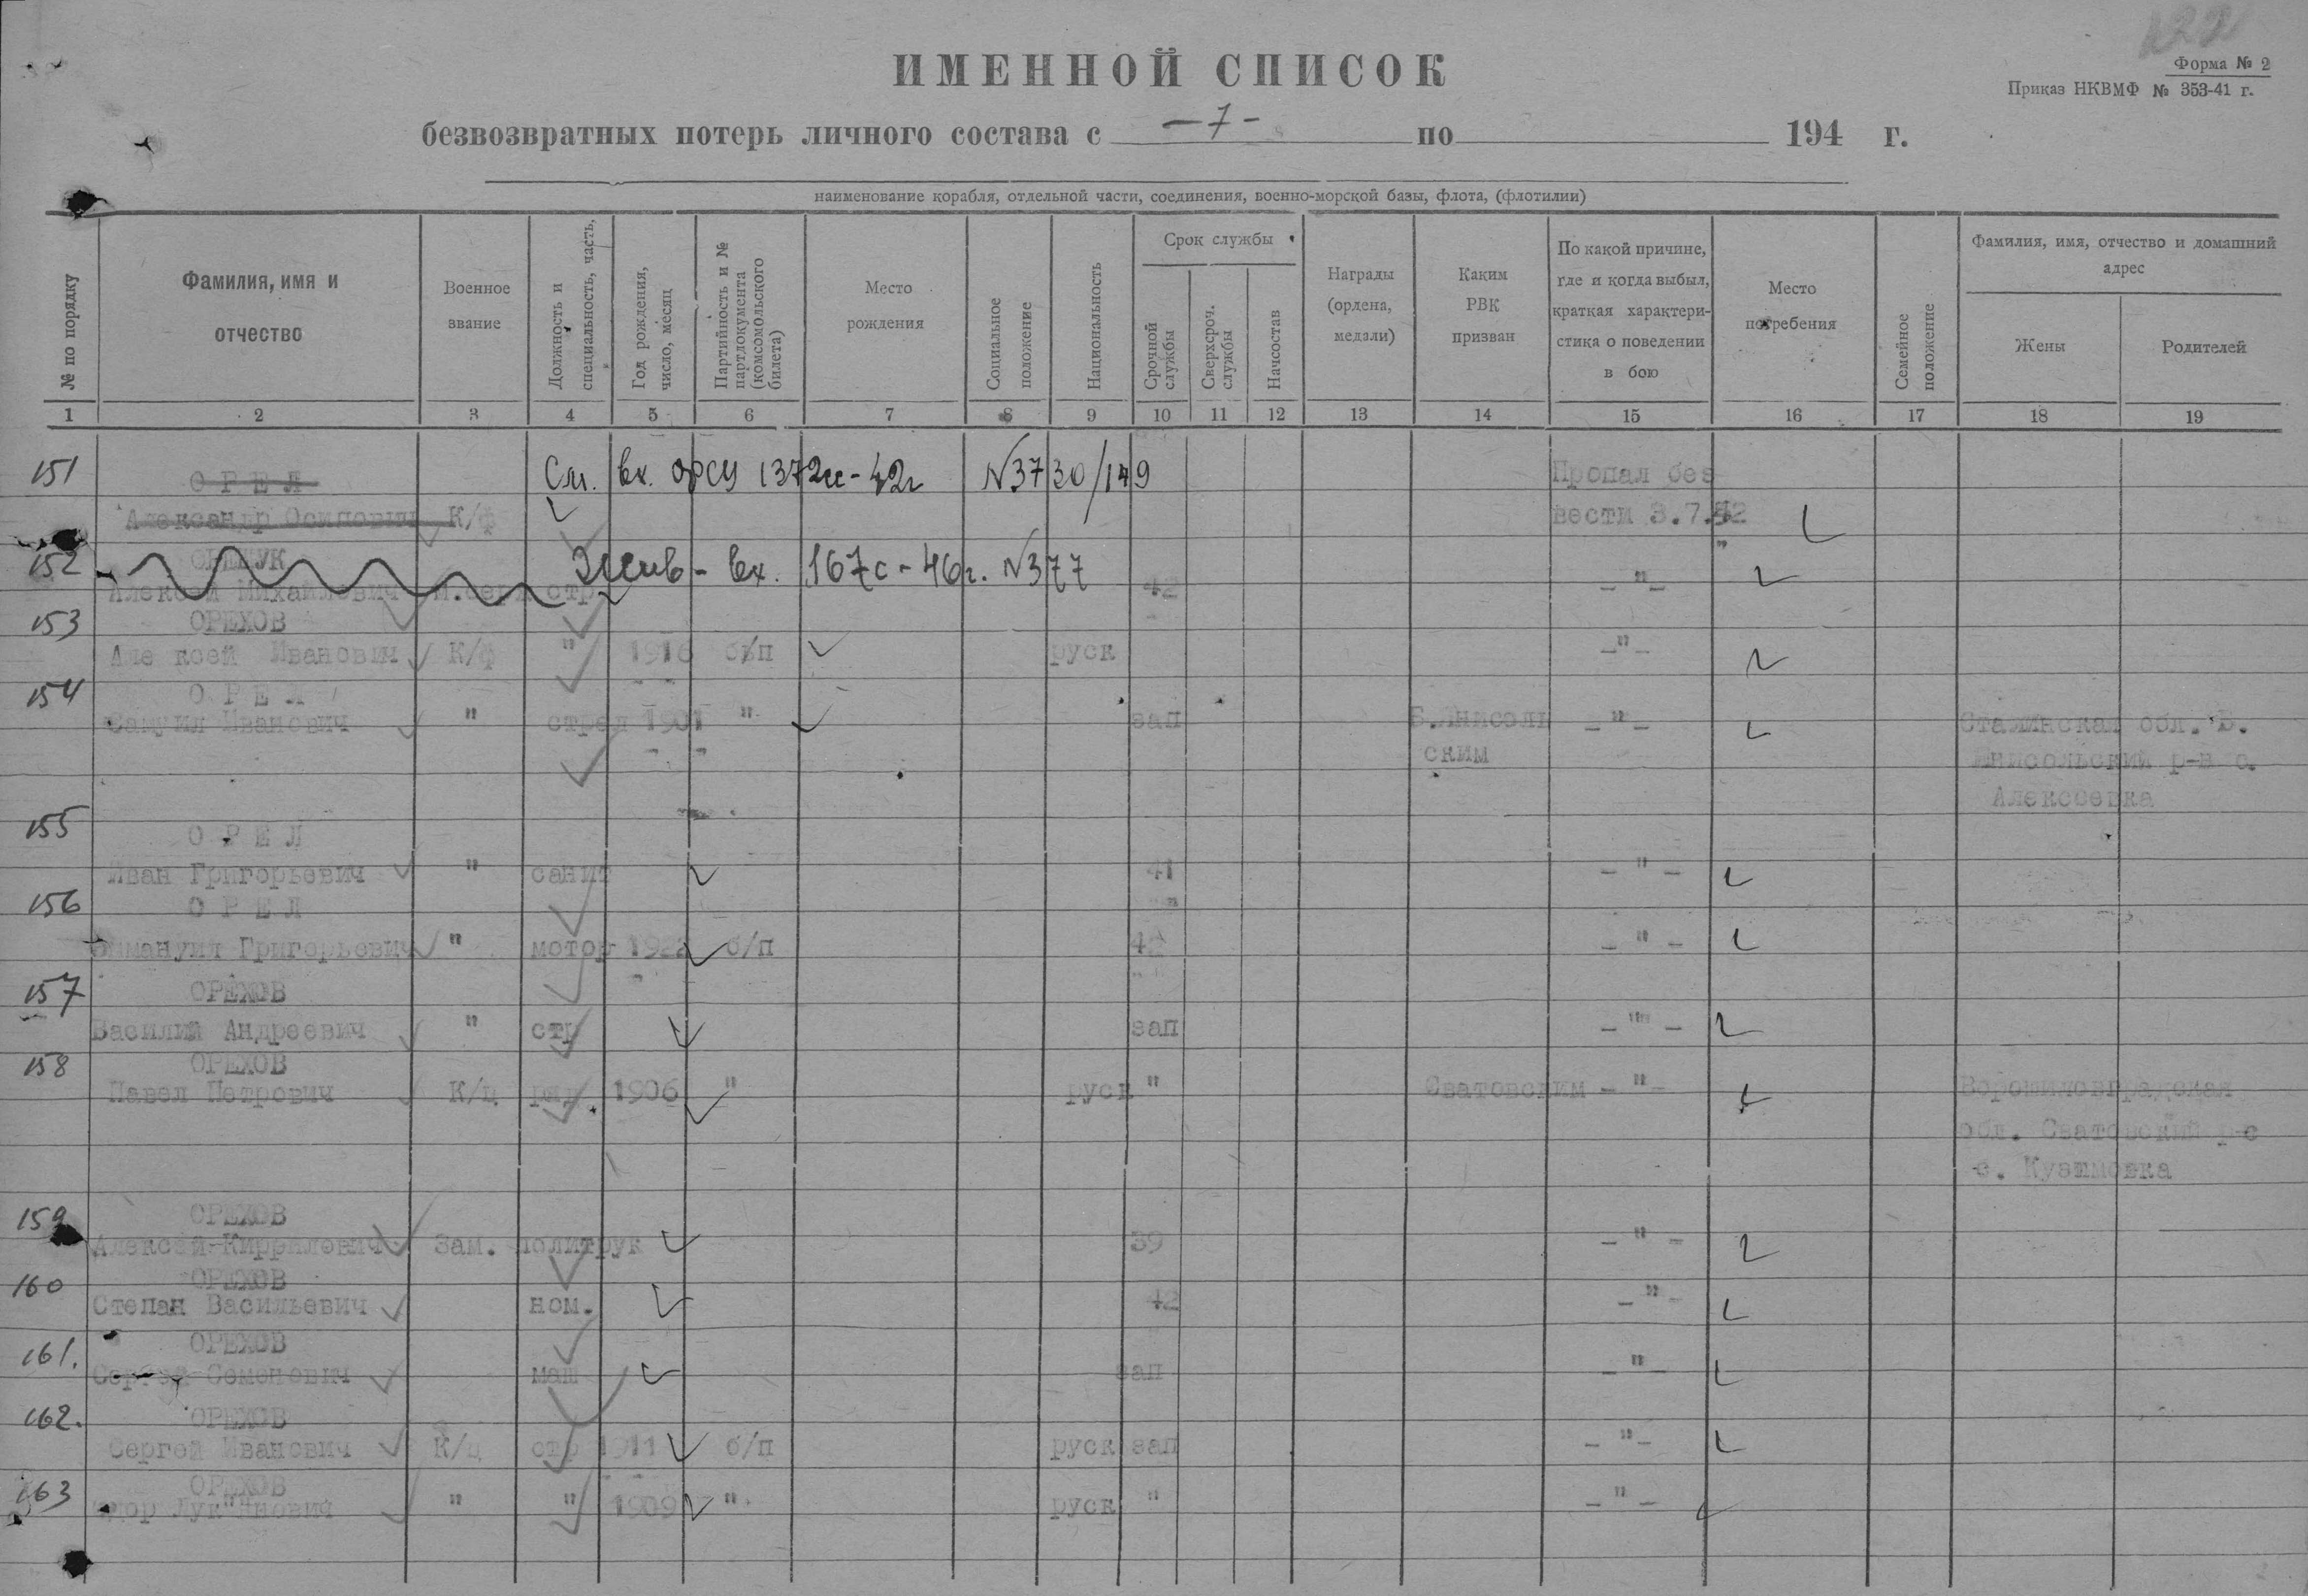 122
ИМЕННОЙ СПИСОК
Форма № 2
Приказ НКВМФ № 353-41 г.
безвозвратных потерь личного состава с -7- по 194 г.
наименование корабля, отдельной части, соединения, военно-морской базы, флота, (флотилии)
№ по порядку
Фамилия, имя и отчество
Военное звание
Должность и специальность, часть,
Год рождения, число, месяц
Партийность и № партдокумента (комсомольского билета)
Место рождения
Социальное положение
Национальность
Срок службы
Срочной службы
Сверхсроч. службы
Начсостав
Награды (ордена, медали)
Каким РВК призван
По какой причине, где и когда выбыл, краткая характеристика о поведении в бою
Место погребения
Семейное положение
Фамилия, имя, отчество и домашний адрес
Жены
Родителей
1 2 3 4 5 6 7 8 9 10 11 12 13 14 15 16 17 18 19
151 ОРЕЛ См. вх. 1372сс-42г №3730/149 Пропал без
Александр Осипович К/ф вести 3.7.42
152 Жив - вх. 167с-46г. №377
Алексей Михайлович М.серж стр 42 -"-
153 ОРЕХОВ
Алексей Иванович К/ф " 1916 б/п руск -"-
154 ОРЕЛ
Самуил Иванович " стрел 1901 " зап Б.Янисоль -"- Сталинская обл. Б.
ским Янисольский р-н с.
Алексеевка
155 ОРЕЛ
Иван Григорьевич " санит 41 -"-
156 ОРЕЛ
Эммануил Григорьевич " мотор б/п -"-
157 ОРЕХОВ
Василий Андреевич " стр зап -"-
158 ОРЕХОВ
Павел Петрович К/ц ряд. 1906 " руск " Сватовским -"- Ворошиловградская
обл. Сватовский р-с
с. Куземовка
159 ОРЕХОВ
Алексей Кириллович Зам. политрук 39 -"-
160 ОРЕХОВ
Степан Васильевич ном. 42 -"-
161. ОРЕХОВ
Сергей Семенович маш зап -"-
162. ОРЕХОВ
Сергей Иванович К/ц стр 1911 б/п руск зап -"-
163 ОРЕХОВ
" " 1909 " руск " -"-